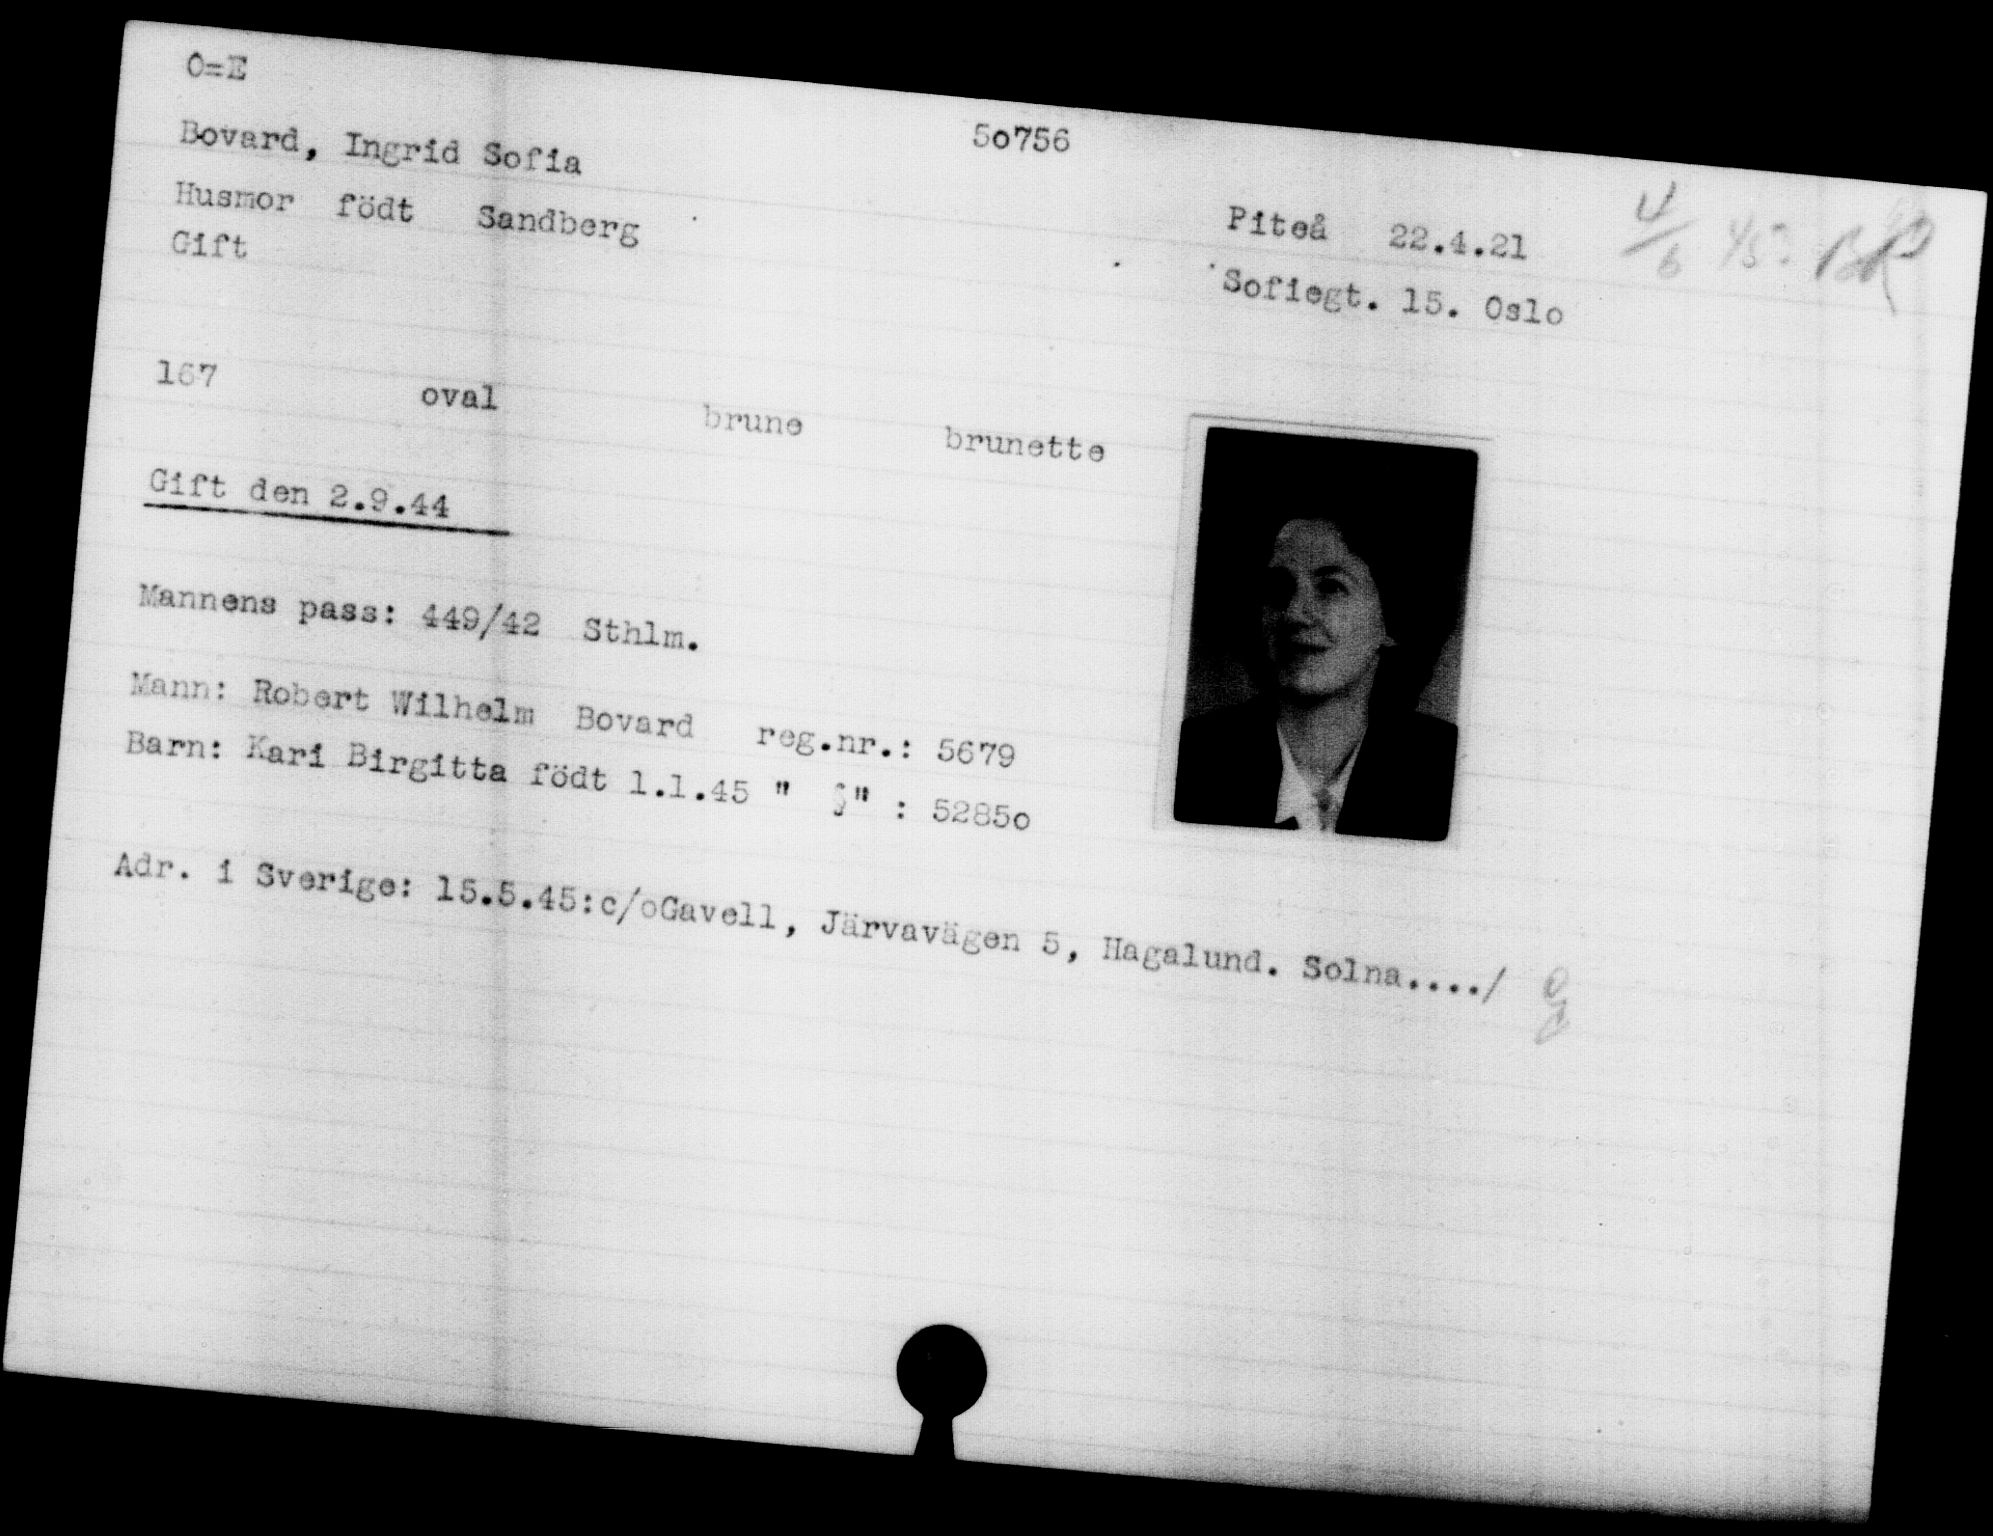 O=E
Bovard, Ingrid Sofia 50756
Husmor födt Sandberg Piteå 22.4.21 4/6 45.
Gift Sofiegt. 15. Oslo
167 oval brune brunette
Gift den 2.9.44
Mannens pass: 449/42 Sthlm.
Mann: Robert Wilhelm Bovard reg.nr.: 5679
Barn: Kari Birgitta födt 1.1.45 " " : 52850
Adr. i Sverige: 15.5.45:c/oGavell, Järvavägen 5, Hagalund. Solna..../